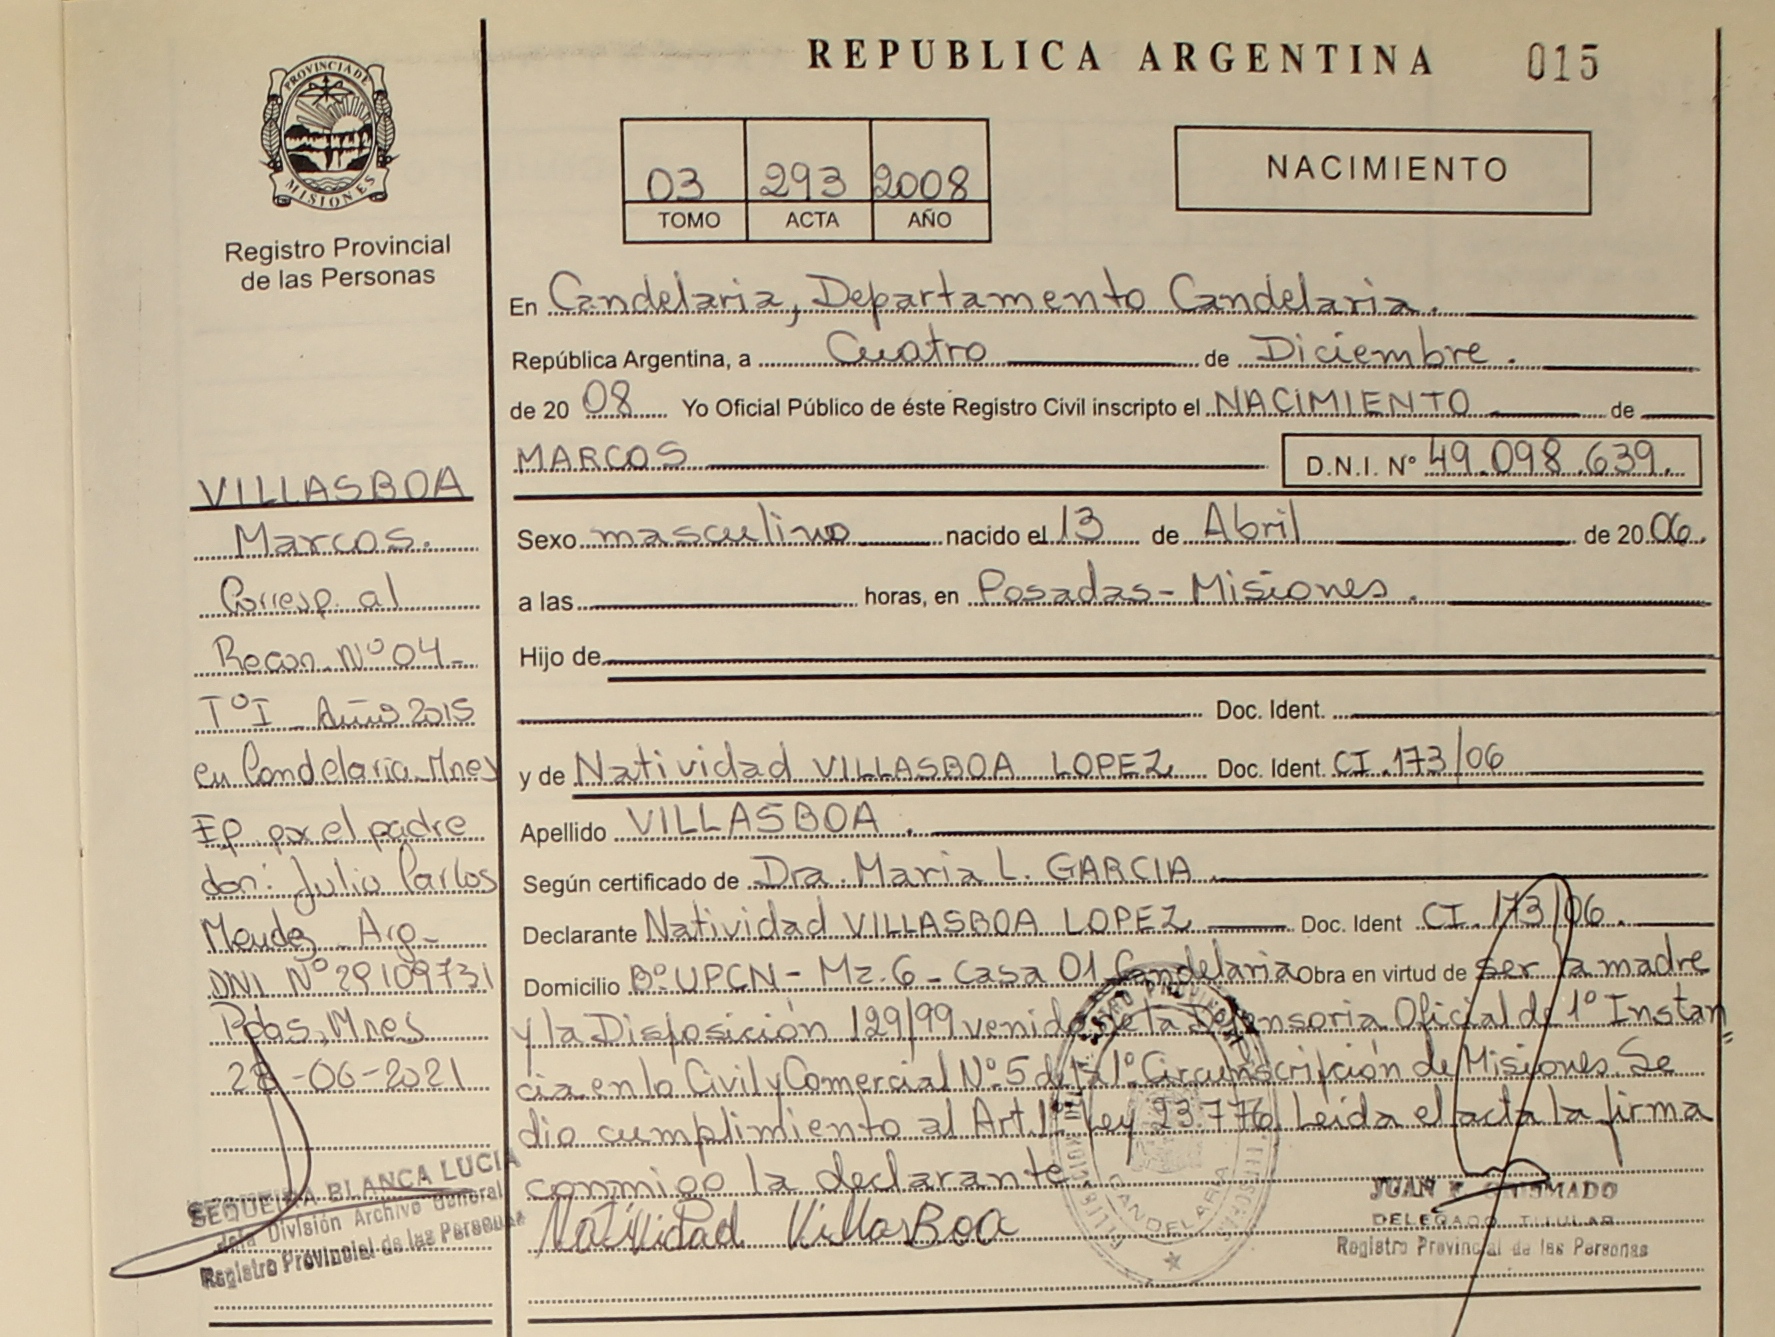 REPUBLICA ARGENTINA 015
PROVINCIA DE
MISIONES
Registro Provincial
de las Personas
03 293 2008
TOMO ACTA AÑO
NACIMIENTO
En Candelaria, Departamento Candelaria.
República Argentina, a Cuatro de Diciembre.
de 2008 Yo Oficial Público de éste Registro Civil inscripto el NACIMIENTO de
MARCOS D.N.I. Nº 49.098.639.
Sexo masculino nacido el 13 de Abril de 2006.
a las horas, en Posadas - Misiones.
Hijo de
Doc. Ident.
y de Natividad VILLASBOA LOPEZ Doc. Ident. CI.173/06
Apellido VILLASBOA.
Según certificado de Dra. Maria L. GARCIA
Declarante Natividad VILLASBOA LOPEZ Doc. Ident CI.173/06.
Domicilio Bº.UPCN - Mz.6 - Casa 01 Candelaria Obra en virtud de ser la madre
y la Disposición 129/99 venido de la Defensoria Oficial de 1º Instan
cia en lo Civil y Comercial Nº.5 de la 1º. Circunscripción de Misiones. Se
dio cumplimiento al Art. 1º Ley 23.776. Leida el acta la firma
conmigo la declarante.
Natividad VillasBoa
VILLASBOA
Marcos.
Corresp. al
Recon. Nº 04 -
TºI - Año 2015
en Candelaria - Mnes
Ep. por el padre
don: Julio Carlos
Mendez Arg -
DNI Nº 29109731
Pdas, Mnes
28-06-2021
SEQUEIRA BLANCA LUCIA
Jefa División Archivo General
Registro Provincial de las Personas
CANDELARIA
JUAN GUISMADO
DELEGADO TITULAR
Registro Provincial de las Personas